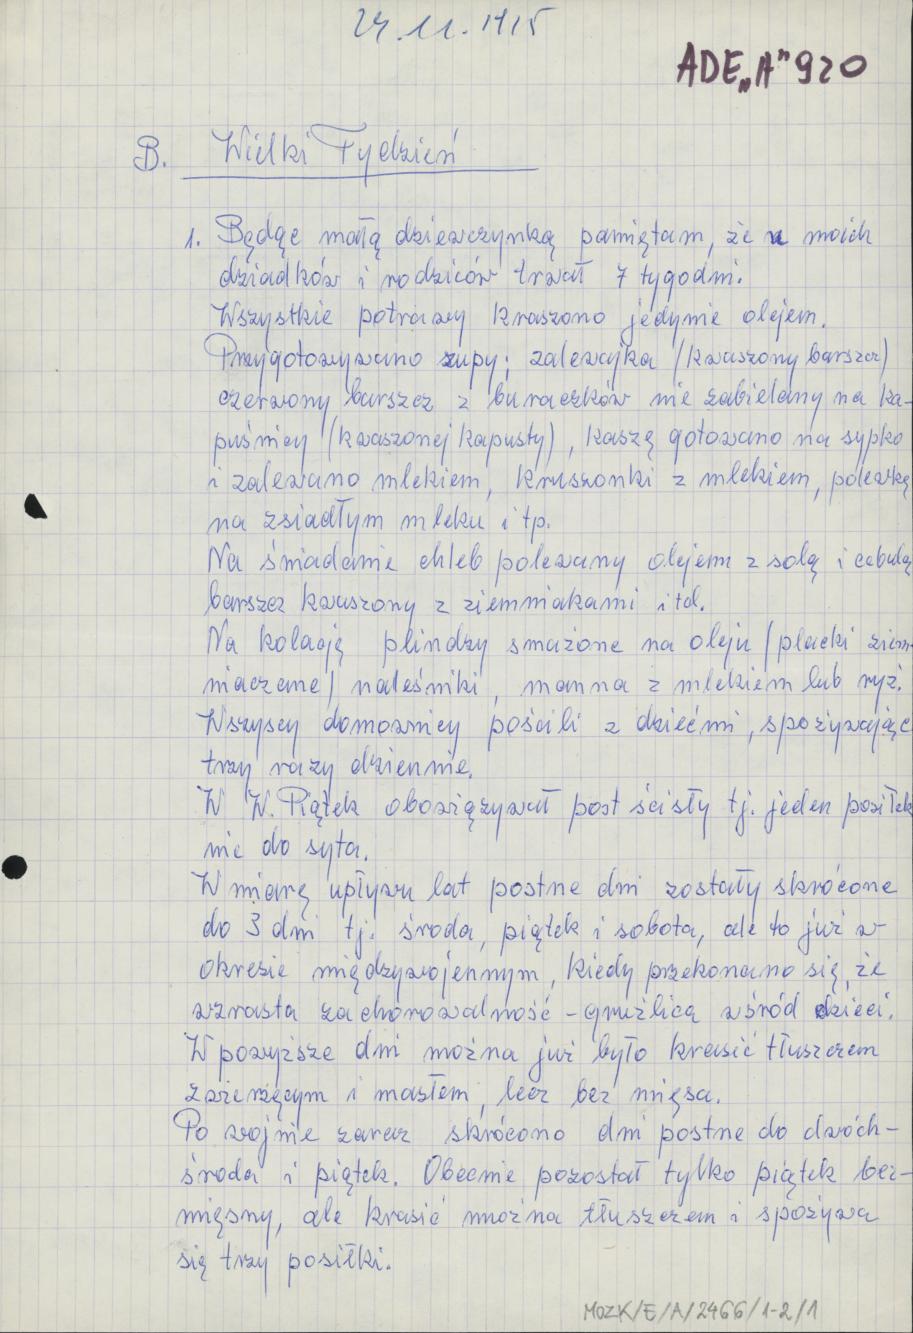 24.11.1915
ADE„A"920
B. Wielki Tydzień
1. Będąc małą dziewczynką pamiętam, że u moich
dziadków i rodziców trwał 7 tygodni.
Wszystkie potrawy kraszono jedynie olejem.
Przygotowywano zupy; zalewajka /kwaszony barszcz/
czerwony barszcz z buraczków nie zabielany na ka-
puśnicy /kwaszonej kapusty/, kaszę gotowano na sypko
i zalewano mlekiem, kruszonki z mlekiem, polewkę
na zsiadłym mleku i tp.
Na śniadanie chleb polewany olejem z solą i cebulą
barszcz kwaszony z ziemniakami itd.
Na kolację plindzy smażone na oleju /placki ziem-
niaczane/ naleśniki, manna z mlekiem lub ryż.
Wszyscy domownicy pościli z dziećmi, spożywając
trzy razy dziennie.
W W. Piątek obowiązywał post ścisły tj. jeden posiłek
nie do syta.
W miarę upływu lat postne dni zostały skrócone
do 3 dni tj. środa, piątek i sobota, ale to już w
okresie międzywojennym, kiedy przekonano się, że
wzrasta zachorowalność - gruźlicą wśród dzieci.
W powyższe dni można już było krasić tłuszczem
zwierzęcym i masłem, lecz bez mięsa.
Po wojnie zaraz skrócono dni postne do dwóch-
środa i piątek. Obecnie pozostał tylko piątek bez-
mięsny, ale krasić można tłuszczem i spożywa
się trzy posiłki.
MOZK/E/A/2466/1-2/1